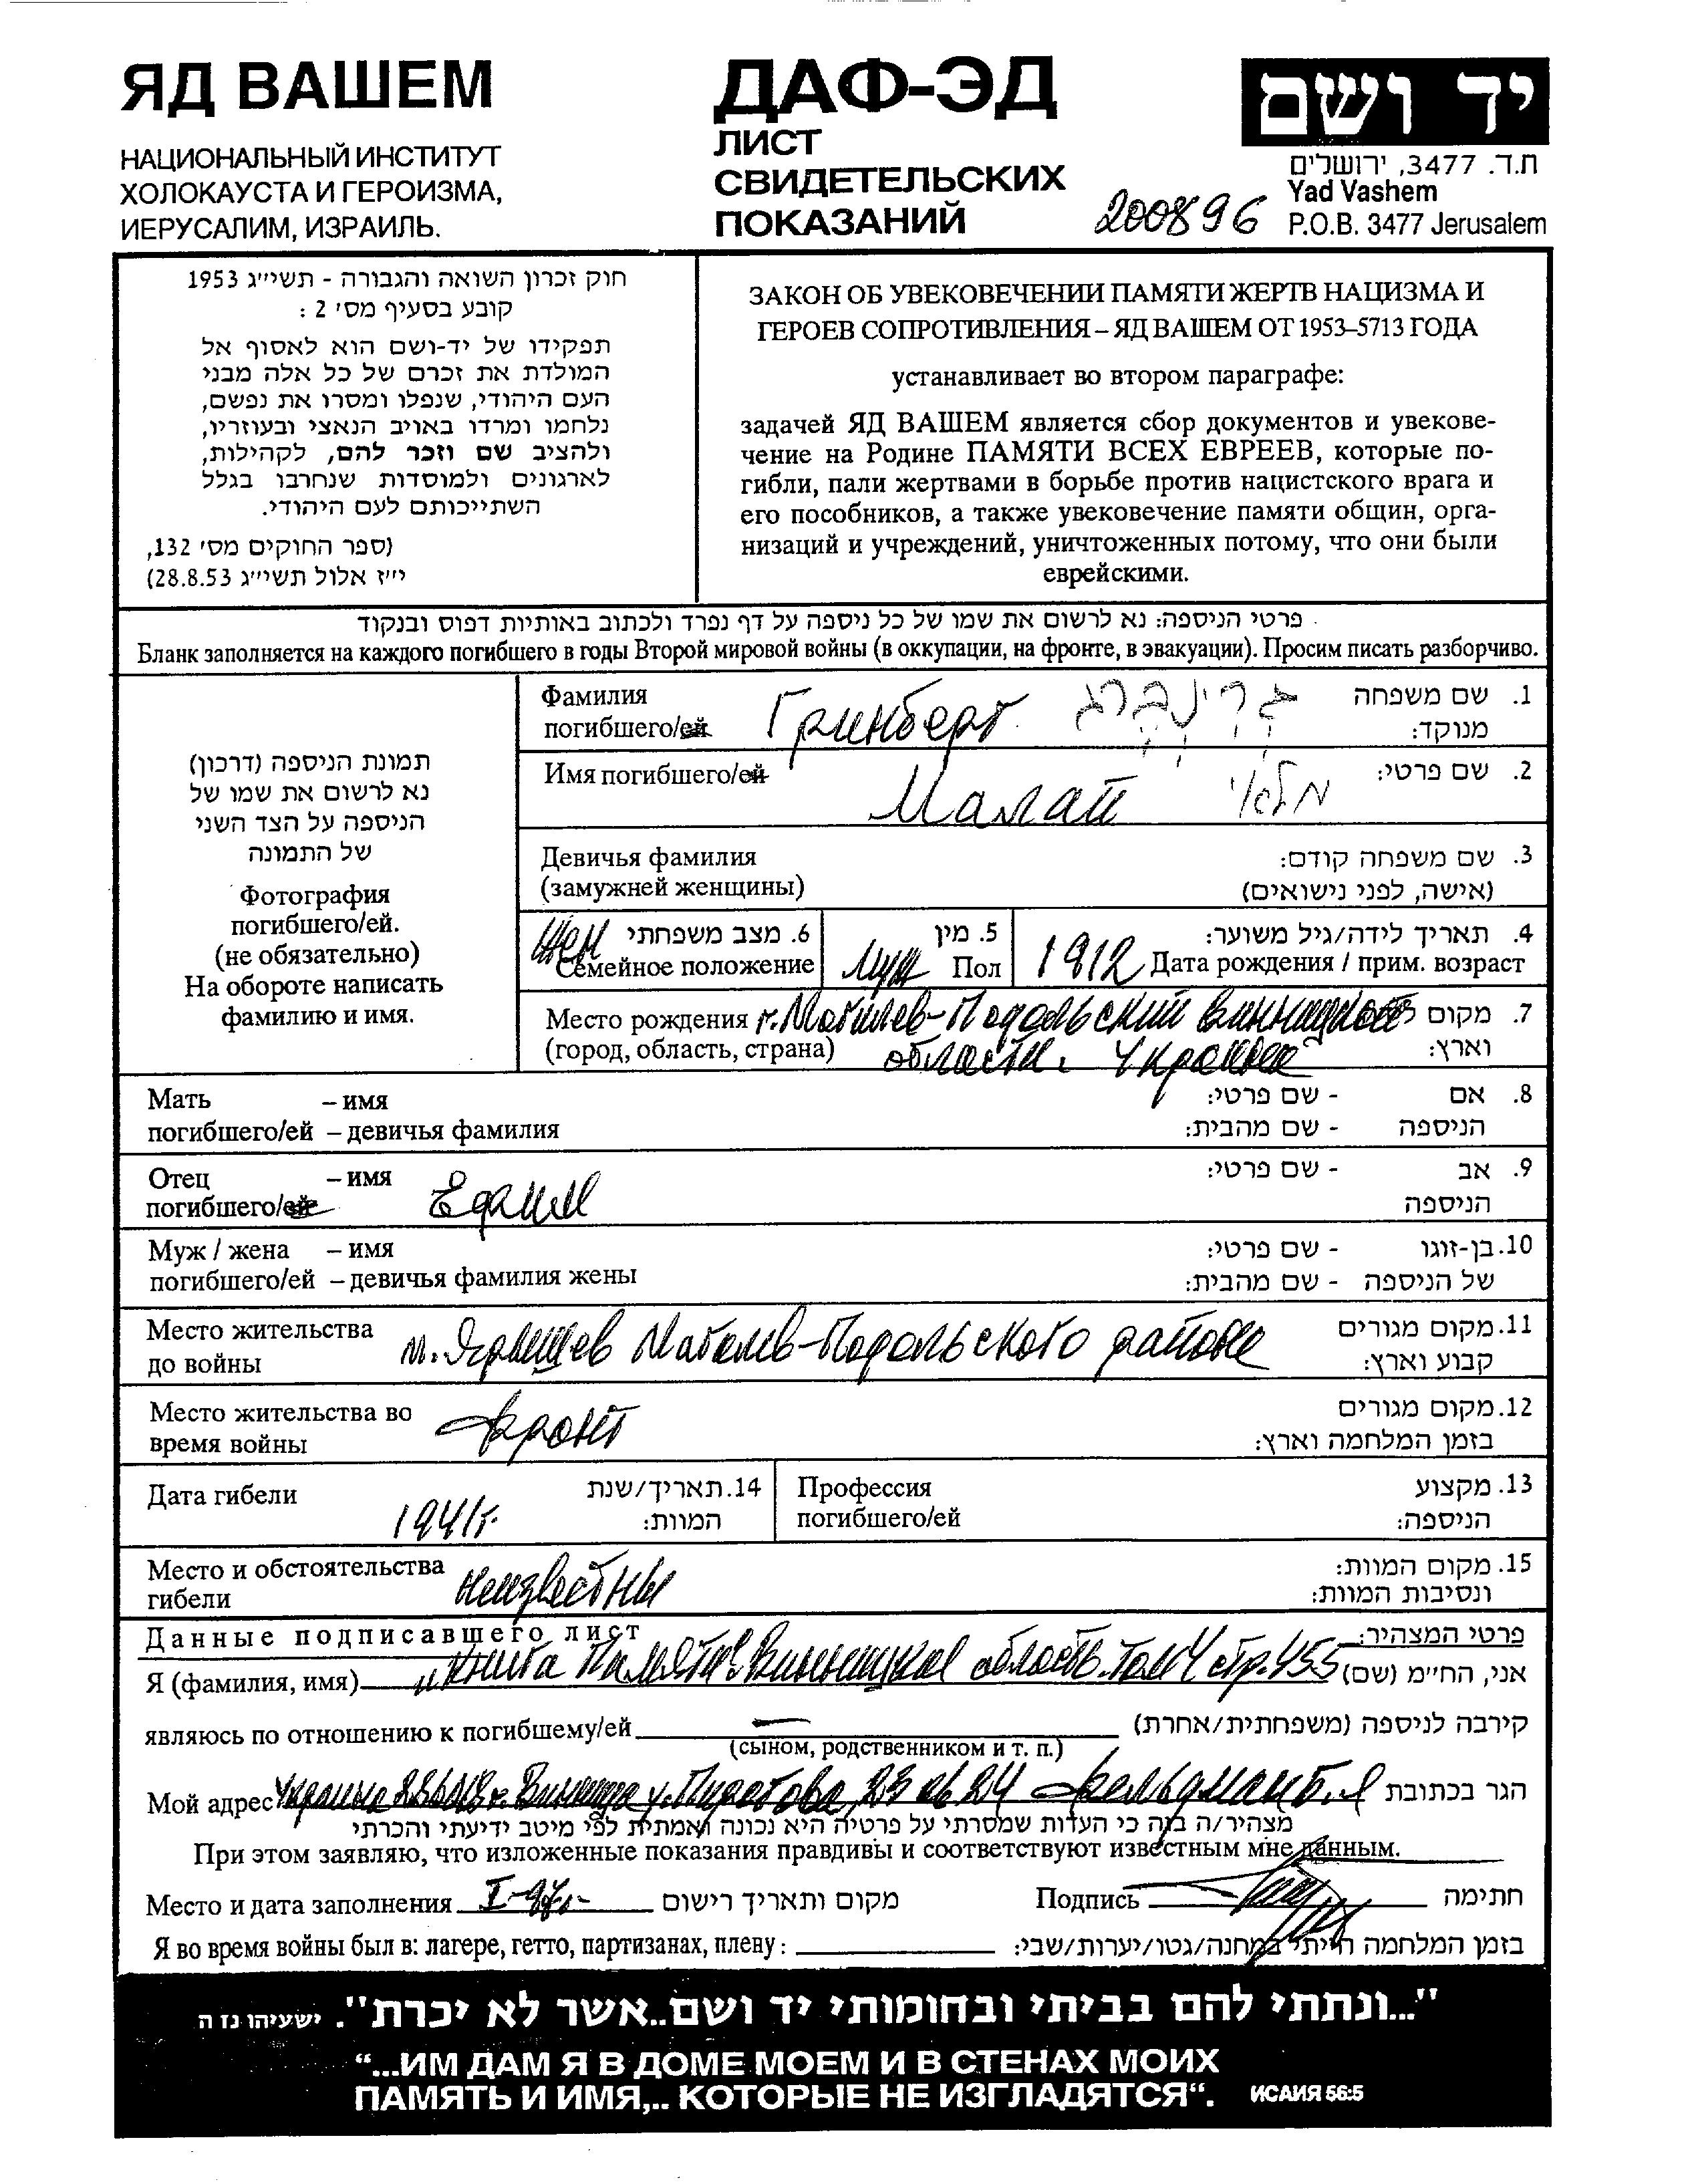 ЯД ВАШЕМ
НАЦИОНАЛЬНЫЙ ИНСТИТУТ
ХОЛОКАУСТА И ГЕРОИЗМА,
ИЕРУСАЛИМ, ИЗРАИЛЬ.
ДАФ-ЭД
ЛИСТ
СВИДЕТЕЛЬСКИХ
ПОКАЗАНИЙ
200896
יד ושם
ת.ד. 3477, ירושלים
Yad Vashem
P.O.B. 3477 Jerusalem
חוק זכרון השואה והגבורה - תשי״ג 1953
קובע בסעיף מס׳ 2 :
תפקידו של יד-ושם הוא לאסוף אל
המולדת את זכרם של כל אלה מבני
העם היהודי, שנפלו ומסרו את נפשם,
נלחמו ומרדו באויב הנאצי ובעוזריו,
ולהציב שם וזכר להם, לקהילות,
לארגונים ולמוסדות שנחרבו בגלל
השתייכותם לעם היהודי.
(ספר החוקים מס׳ 132,
י״ז אלול תשי״ג 28.8.53)
ЗАКОН ОБ УВЕКОВЕЧЕНИИ ПАМЯТИ ЖЕРТВ НАЦИЗМА И
ГЕРОЕВ СОПРОТИВЛЕНИЯ – ЯД ВАШЕМ ОТ 1953–5713 ГОДА
устанавливает во втором параграфе:
задачей ЯД ВАШЕМ является сбор документов и увекове-
чение на Родине ПАМЯТИ ВСЕХ ЕВРЕЕВ, которые по-
гибли, пали жертвами в борьбе против нацистского врага и
его пособников, а также увековечение памяти общин, орга-
низаций и учреждений, уничтоженных потому, что они были
еврейскими.
פרטי הניספה: נא לרשום את שמו של כל ניספה על דף נפרד ולכתוב באותיות דפוס ובנקוד
Бланк заполняется на каждого погибшего в годы Второй мировой войны (в оккупации, на фронте, в эвакуации). Просим писать разборчиво.
תמונת הניספה (דרכון)
נא לרשום את שמו של
הניספה על הצד השני
של התמונה
Фотография
погибшего/ей.
(не обязательно)
На обороте написать
фамилию и имя.
Фамилия
погибшего/ей Гринберг גרינברג
1. שם משפחה
מנוקד:
Имя погибшего/ей Малай מלאי 2. שם פרטי:
Девичья фамилия
(замужней женщины)
3. שם משפחה קודם:
(אישה, לפני נישואים)
жен 6. מצב משפחתי
Семейное положение
муж 5. מין
Пол
1912 4. תאריך לידה/גיל משוער:
Дата рождения / прим. возраст
Место рождения г. Могилев-Подольский Винницкой 7. מקום
(город, область, страна) области. Украина וארץ:
Мать – имя - שם פרטי: 8. אם
погибшего/ей – девичья фамилия - שם מהבית: הניספה
Отец – имя Ефаим - שם פרטי: 9. אב
погибшего/ей הניספה
Муж / жена – имя - שם פרטי: 10. בן-זוגו
погибшего/ей – девичья фамилия жены - שם מהבית: של הניספה
Место жительства
до войны м. Яришев Могилев-Подольского района
11. מקום מגורים
קבוע וארץ:
Место жительства во
время войны фронт
12. מקום מגורים
בזמן המלחמה וארץ:
Дата гибели 1941г. 14. תאריך/שנת
המוות:
Профессия
погибшего/ей
13. מקצוע
הניספה:
Место и обстоятельства
гибели неизвестны
15. מקום המוות:
ונסיבות המוות:
Данные подписавшего лист פרטי המצהיר:
Я (фамилия, имя) "Книга Памяти" Винницкая область. Том 4 стр. 455 אני, החי״מ (שם)
являюсь по отношению к погибшему/ей — קירבה לניספה (משפחתית/אחרת)
(сыном, родственником и т. п.)
Мой адрес Украина г. Винница у. Пирогова, 23 кв 24 Фельдман Б.Я הגר בכתובת
מצהיר/ה בזה כי העדות שמסרתי על פרטיה היא נכונה ואמתית לפי מיטב ידיעתי והכרתי
При этом заявляю, что изложенные показания правдивы и соответствуют известным мне данным.
Место и дата заполнения I-97г. מקום ותאריך רישום Подпись חתימה
Я во время войны был в: лагере, гетто, партизанах, плену: בזמן המלחמה הייתי במחנה/גטו/יערות/שבי:
"...ונתתי להם בביתי ובחומותי יד ושם..אשר לא יכרת". ישעיהו נז ה
“...ИМ ДАМ Я В ДОМЕ МОЕМ И В СТЕНАХ МОИХ
ПАМЯТЬ И ИМЯ,.. КОТОРЫЕ НЕ ИЗГЛАДЯТСЯ“. ИСАИЯ 56:5